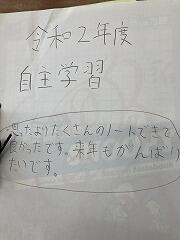 令和2年度
自主学習
思ったよりたくさんのノートできて
良かったです。来年もがんばり
たいです。